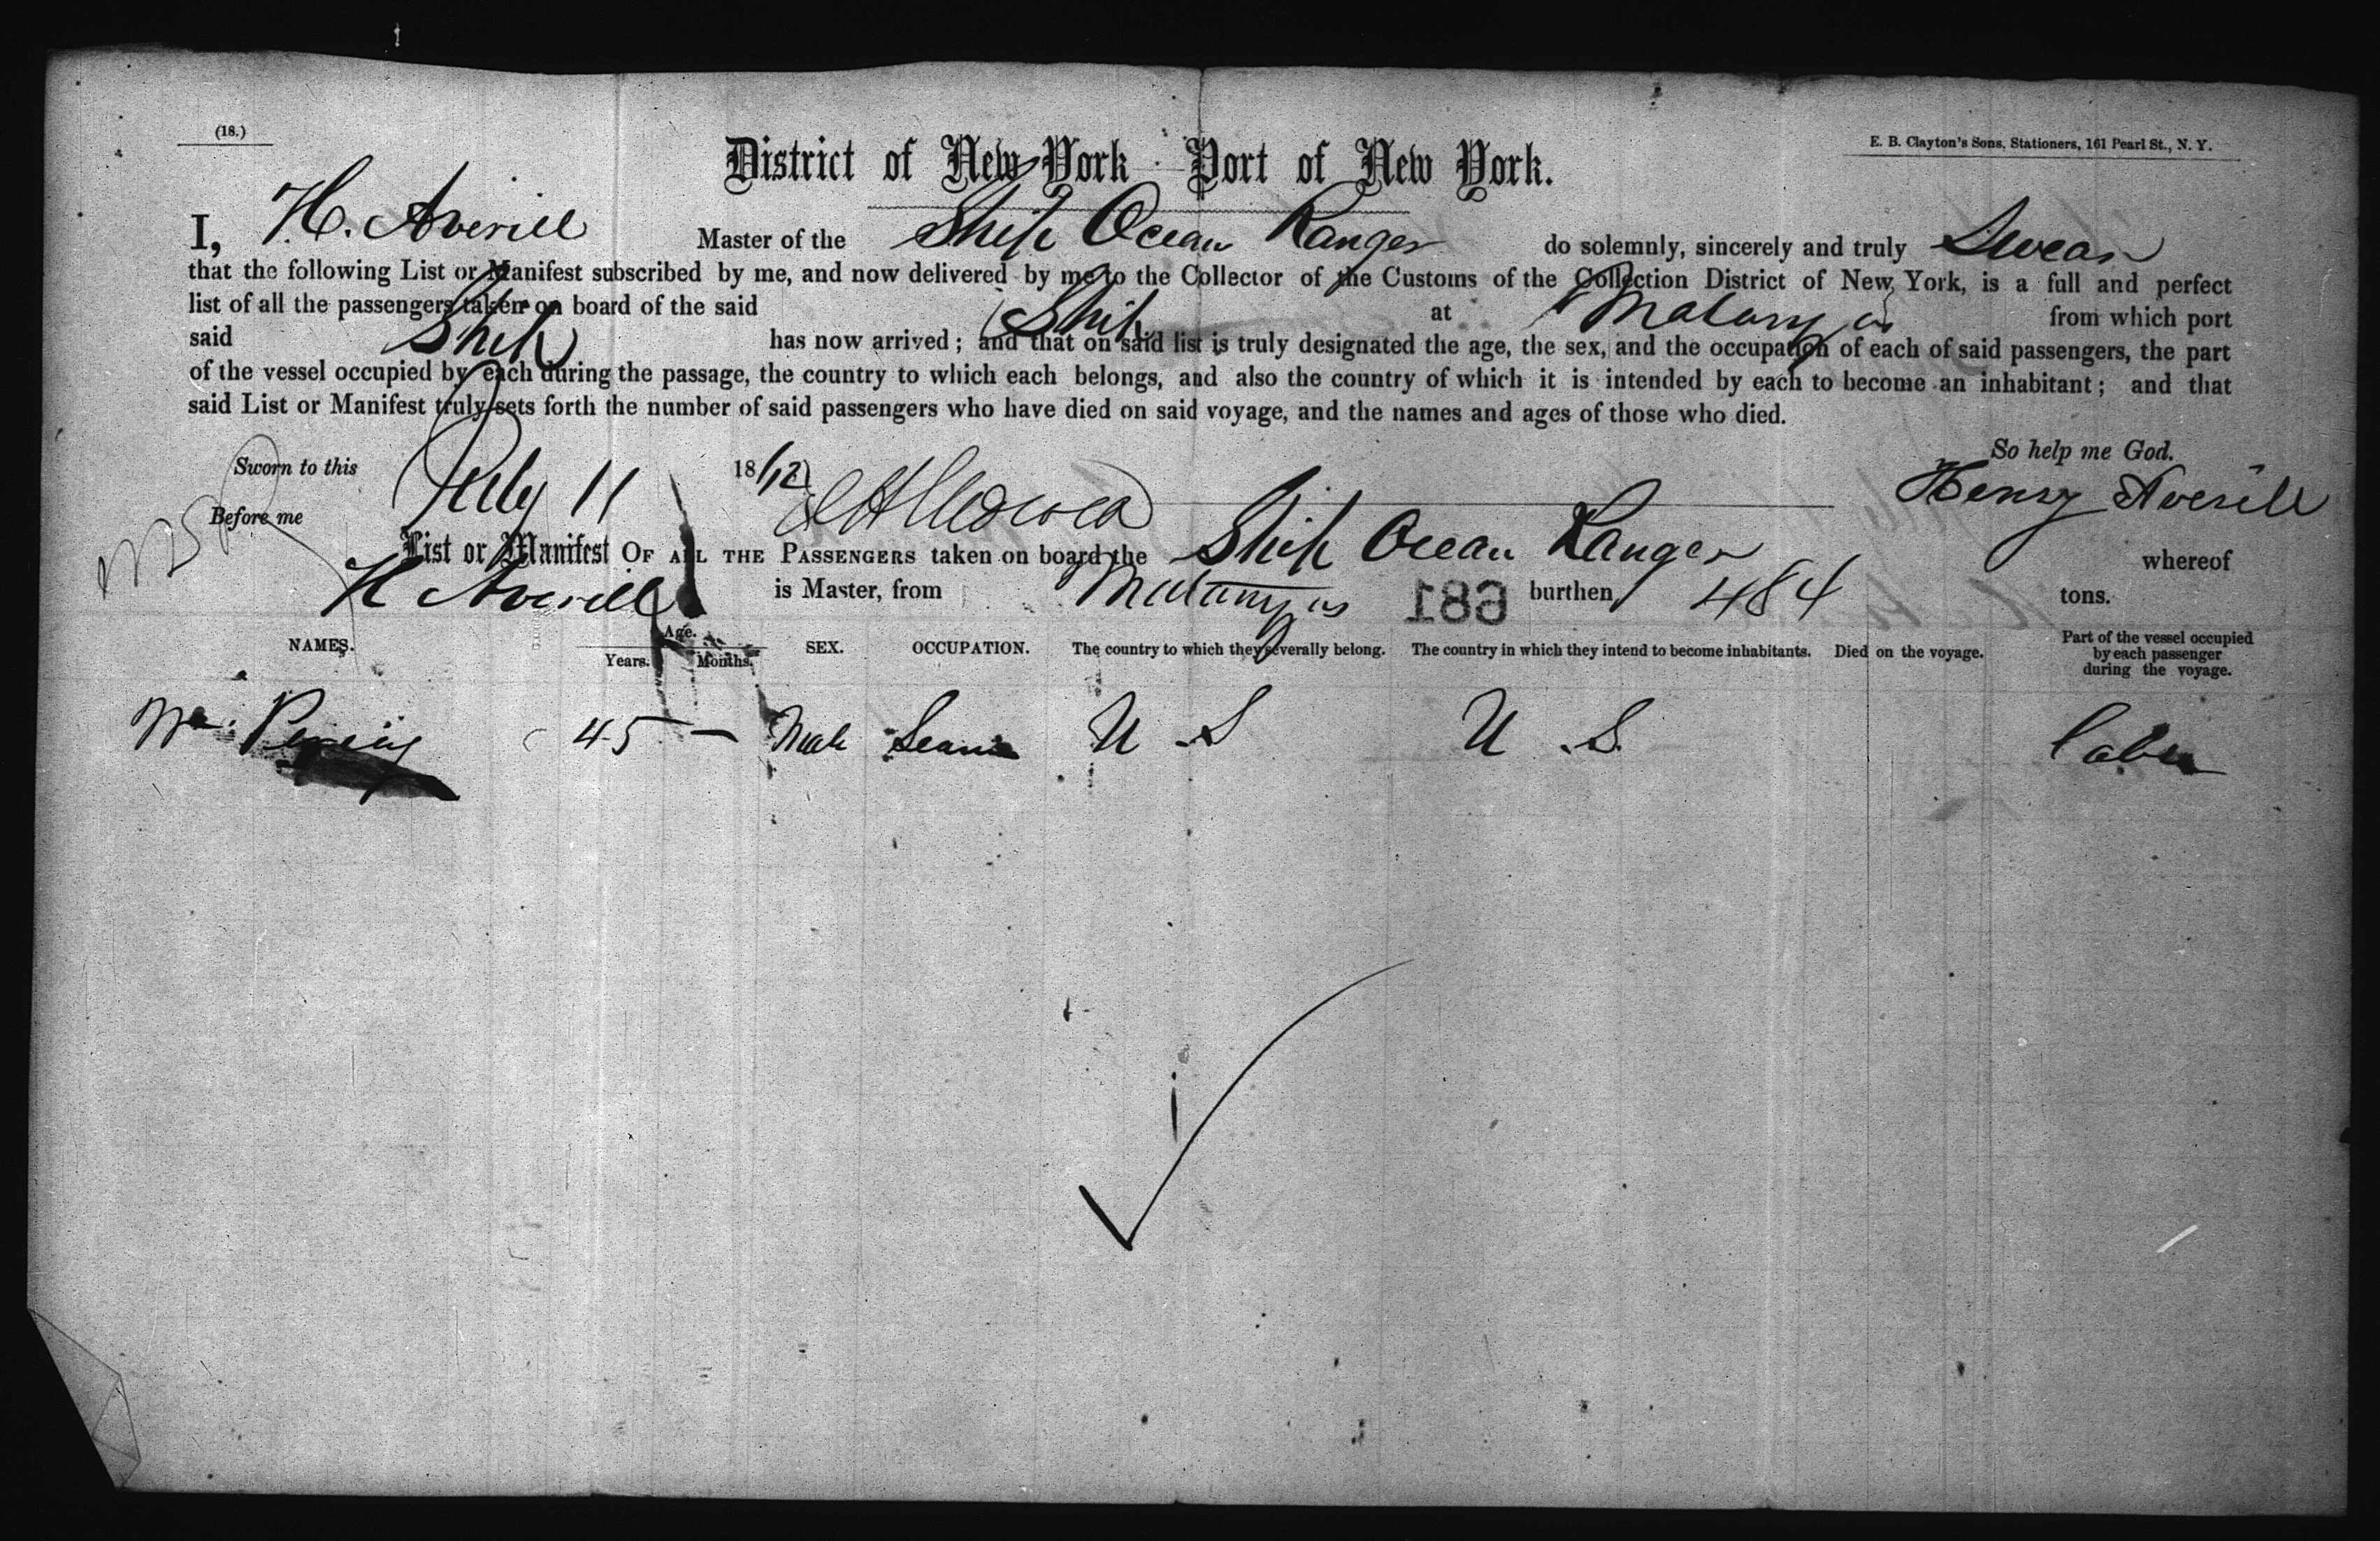 (18.)
E. B. Clayton's Sons, Stationers, 161 Pearl St., N. Y.
District of New York Port of New York.
I, H. Averill Master of the Ship Ocean Ranger do solemnly, sincerely and truly Swear
that the following List or Manifest subscribed by me, and now delivered by me to the Collector of the Customs of the Collection District of New York, is a full and perfect
list of all the passengers taken on board of the said Ship at Matanzas from which port
said Ship has now arrived; and that on said list is truly designated the age, the sex, and the occupation of each of said passengers, the part
of the vessel occupied by each during the passage, the country to which each belongs, and also the country of which it is intended by each to become an inhabitant; and that
said List or Manifest truly sets forth the number of said passengers who have died on said voyage, and the names and ages of those who died.
So help me God.
Sworn to this July 11 18
Before me Henry Averill
List or Manifest OF ALL THE PASSENGERS taken on board the Ship Ocean Ranger whereof
H Averill is Master, from Matanzas 681 burthen 484 tons.
NAMES. Age. Years. Months. SEX. OCCUPATION. The country to which they severally belong. The country in which they intend to become inhabitants. Died on the voyage. Part of the vessel occupied by each passenger during the voyage.
Wm. 45 – Male U S U. S. Cabin